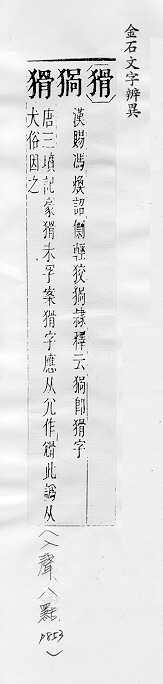 金石文字辨異
猾
猧
猾
漢賜馮煥詔輕狡猧隸釋云猧即猾字
唐三墳記家猾未孚案猾字應从允作此譌从
犬俗因之
(入聲、八黠 P853)